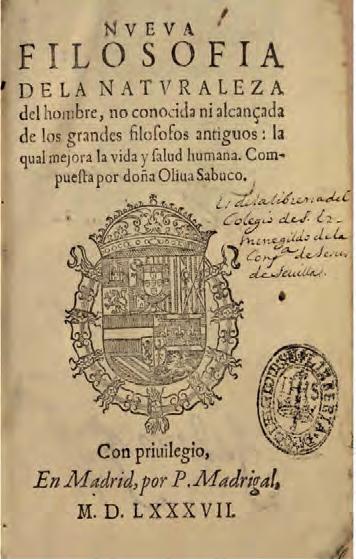 NVEVA
FILOSOFIA
DELA NATVRALEZA
del hombre, no conocida ni alcançada
de los grandes filosofos antiguos: la
qual mejora la vida y salud humana. Com-
puesta por doña Oliua Sabuco.
Es de la libreria del
Colegio de S. Er-
menegildo de la
Conp.ª de Jesus
de Seuilla.
Con priuilegio,
En Madrid, por P. Madrigal,
M. D. LXXXVII.